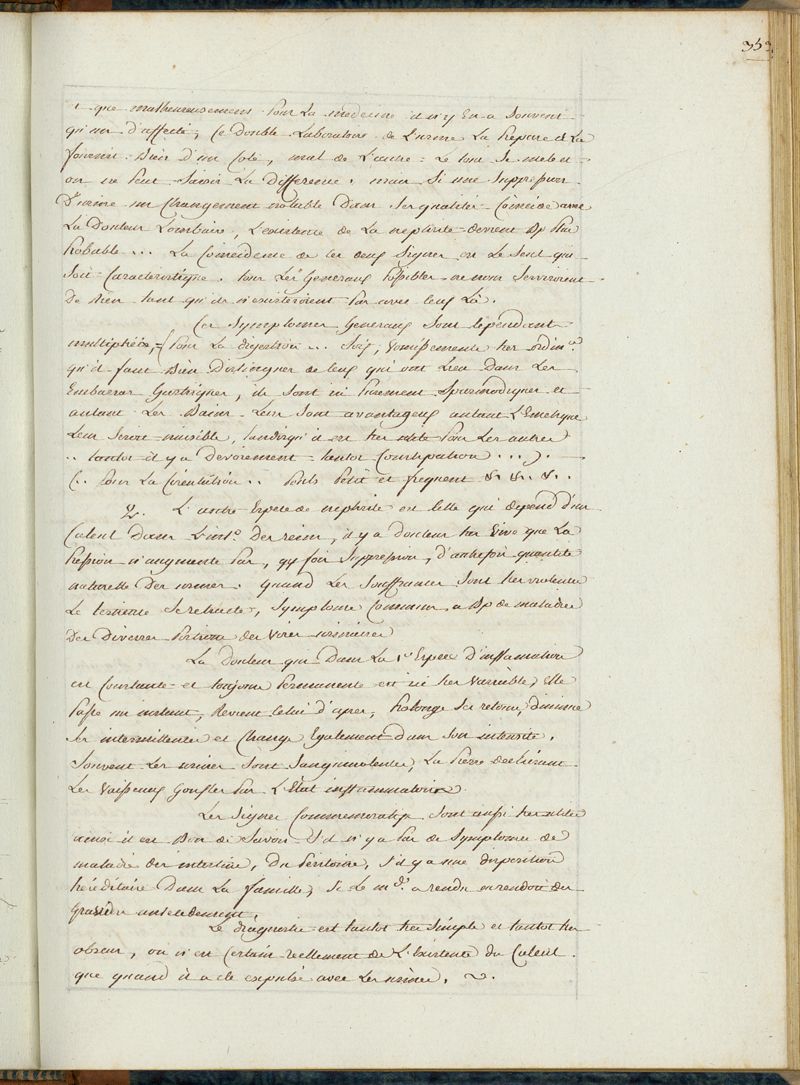 353
que malheureusement Pour La medecine il n'y En a Souvent
qu'un d'affecté, Ce Double Laboratoire de L'urine La Prepare et La
fournit Bien d'un Coté, mal de L'autre = Le tout Se mele et
on ne Peut Saisir La difference, mais Si une Suppression
D'urine un Changement notable Dans Ses qualités Coincide avec
La Douleur Lombaire, L'existence de La nephrite devient Dp Plus
Probable ... La Coincidence de Ces deux Signes est Le Seul qui
Soit Caracteristique. tous Les Generaux Possibles ne nous Serviroient
De rien tant qu'ils n'existeroient Pas avec Ceux Là.
Ces Symptomes Generaux Sont Cependant
multipliés, = (Pour La digestion ... Soif, Vomissements tres ordin.es
qu'il faut Bien Distinguer de Ceux qui ont Lieu Dans Les
Embarras Gastriques, ils Sont ici Purement Spasmodiques et
autant Les Bains Leur Sont avantageux autant L'Emetique
Leur Seroit nuisible, tandis qu'il est tres utile Pour Les autres
.. tantot il y a Devoiement = tantot Constipation ...).
(.. Pour La Circulation .. Pouls Petit et frequent &. &. &.
2. L'autre Espece de nephrite est Celle qui depend d'un
Calcul Dans L'int.r Des reins, il y a douleur tres Vive que La
Pression n'augmente Pas, qq fois Suppression, d'autrefois quantité
naturelle Des urines. quand Les Souffrances Sont tres violentes
Le testicule Se retracte, Symptome Commun a Dp de maladies
Des Diverses Portions des Voies urinaires
La Douleur qui Dans La 1.e Espece D'inflamation
est Constante et toujours Permanente est ici tres Variable, Elle
Passe un instant, Revient Celui d'apres, Prolonge Ses retours, diminue
Ses intermittences et Change Egalement dans Son intensité.
Souvent Les urines Sont Sanguinolentes, La Pierre dechirant
Les Vaisseaux Gonflés Par L'État inflammatoire.
Les Signes Commemoratifs Sont aussi tres utiles
ainsi il est Bon de Savoir S'il n'y a Pas de Symptomes de
maladie des intestins, Du Peritoine, S'il y a une disposition
héréditaire Dans La famille, Si Le m.de a rendu ou rendoit des
Graviers antecedemment.
Le diagnostic est tantot tres Simple et tantot tres
obscur, on n'est Certain reellement de L'Existence du Calcul
que quand il a été expulsé avec Les urines.